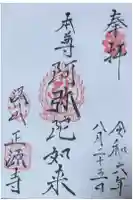 奉拝
令和六年
八月二十五日
本尊阿弥陀如来
正源寺